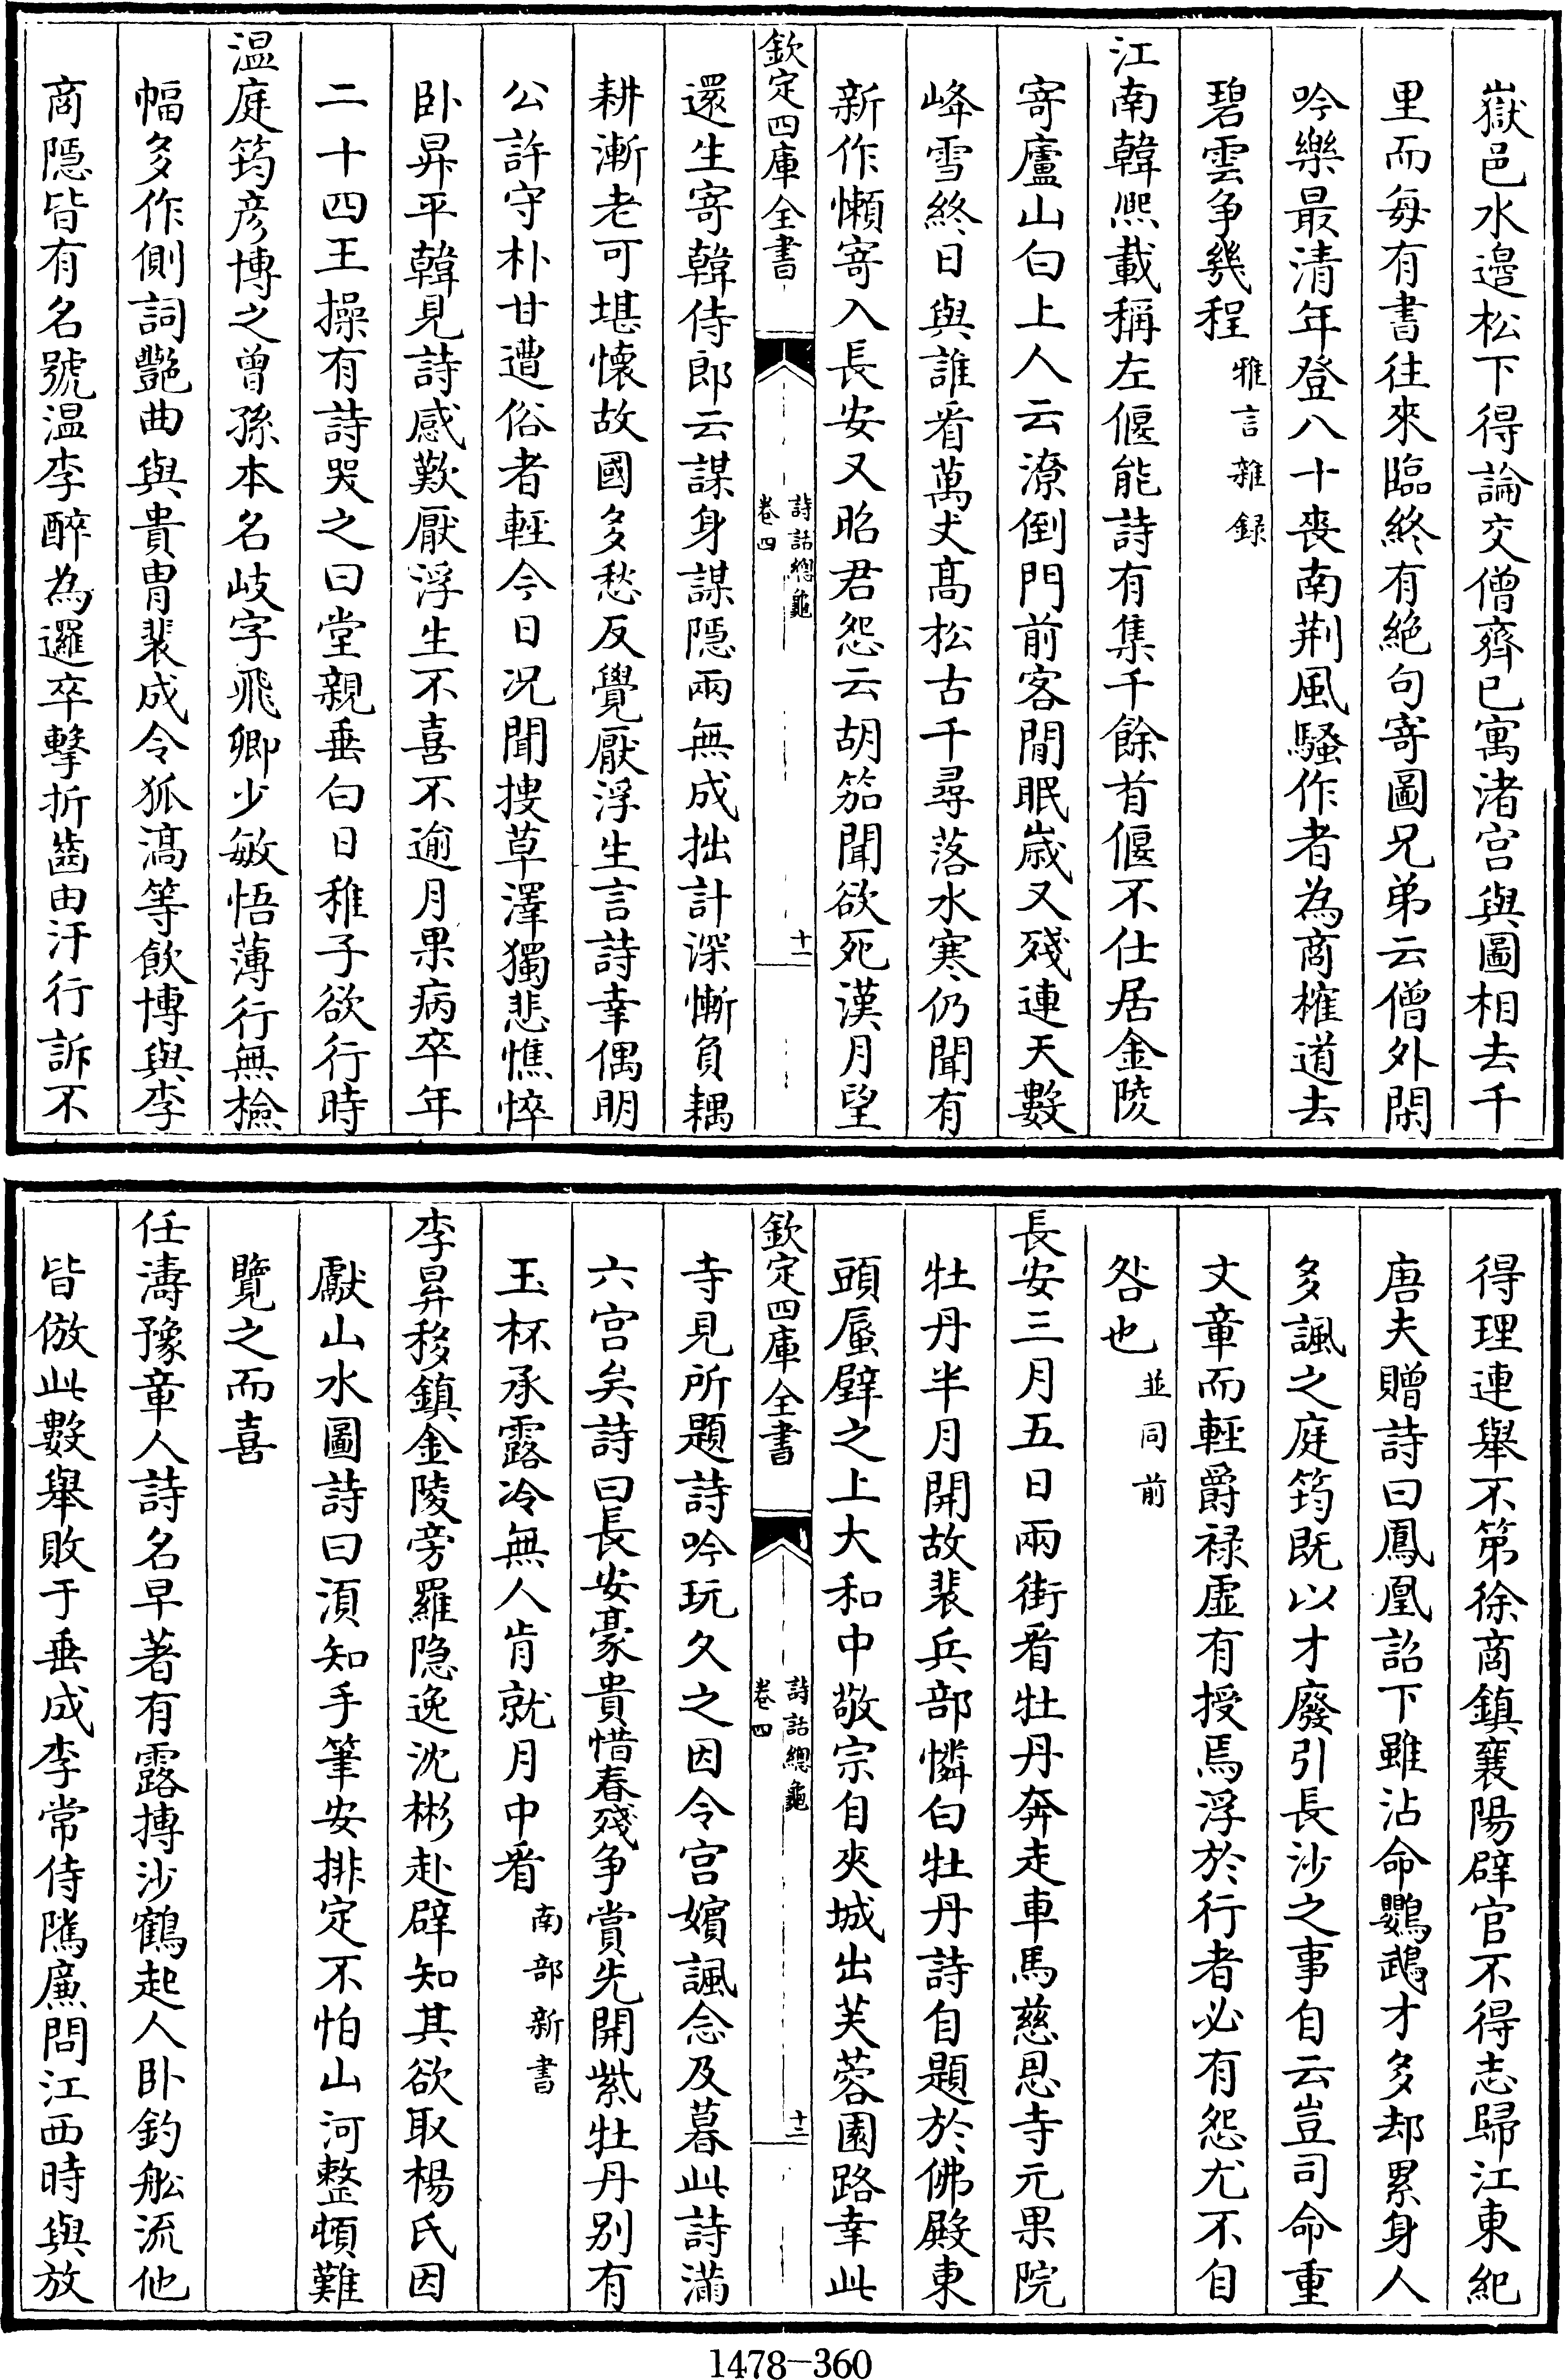 嶽邑水邉松下得論交僧齊已寓渚宫與圖相去千
里而每有書往來臨終有絶句寄圖兄弟云僧外閑
吟樂最清年登八十喪南荆風騷作者為商榷道去
碧雲争幾程雅言雜録
江南韓熙載稱左偃能詩有集千餘首偃不仕居金陵
寄廬山白上人云潦倒門前客閒眠歳又殘連天數
峰雪終日與誰㸔萬丈髙松古千尋落水寒仍聞有
新作懶寄入長安又昭君怨云胡笳聞欲死漢月望
欽定四庫全書
詩話總龜
卷四
十一
還生寄韓侍郎云謀身謀隠兩無成拙計深慚負耦
耕漸老可堪懷故國多愁反覺厭浮生言詩幸偶明
公許守朴甘遭俗者輕今日况聞搜草澤獨悲憔悴
卧昇平韓見詩感歎厭浮生不喜不逾月果病卒年
二十四王操有詩哭之曰堂親垂白日稚子欲行時
温庭筠彦博之曾孫本名岐字飛卿少敏悟薄行無檢
幅多作側詞艷曲與貴胄裴成令狐滈等飲博與李
商隠皆有名號温李醉為邏卒擊折齒由汙行訴不
得理連舉不第徐商鎮襄陽辟官不得志歸江東紀
唐夫贈詩曰鳳凰詔下雖沾命鸚鵡才多却累身人
多諷之庭筠既以才廢引長沙之事自云豈司命重
文章而輕爵禄虚有授焉浮於行者必有怨尤不自
咎也並同前
長安三月五日兩街㸔牡丹奔走車馬慈恩寺元果院
牡丹半月開故裴兵部憐白牡丹詩自題於佛殿東
頭蜃壁之上大和中敬宗自夾城出芙蓉園路幸此
欽定四庫全書
詩話總龜
卷四
十二
寺見所題詩吟玩久之因令宫嬪諷念及暮此詩滿
六宫矣詩曰長安豪貴惜春殘争賞先開紫牡丹别有
玉杯承露冷無人肯就月中㸔南部新書
李昇移鎮金陵旁羅隠逸沈彬赴辟知其欲取楊氏因
獻山水圖詩曰湏知手筆安排定不怕山河整頓難
覽之而喜
任濤豫章人詩名早著有露摶沙鶴起人卧釣船流他
皆倣此數舉敗于垂成李常侍隲廉問江西時與放
1478-360